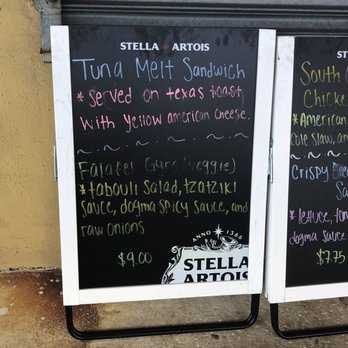 STELLA ARTOIS
Tuna Melt Sandwich
* Served on texas toast
with Yellow american cheese.
Falafel Gyro (veggie)
* tabouli Salad, tzatziki
Sauce, dogma spicy sauce, and
raw onions
$9.00
ANNO 1366
STELLA
ARTOIS
South
Chicke
* American
cole slaw, an
Crispy
Sa
* lettuce, tom
dogma sauce
$7.75